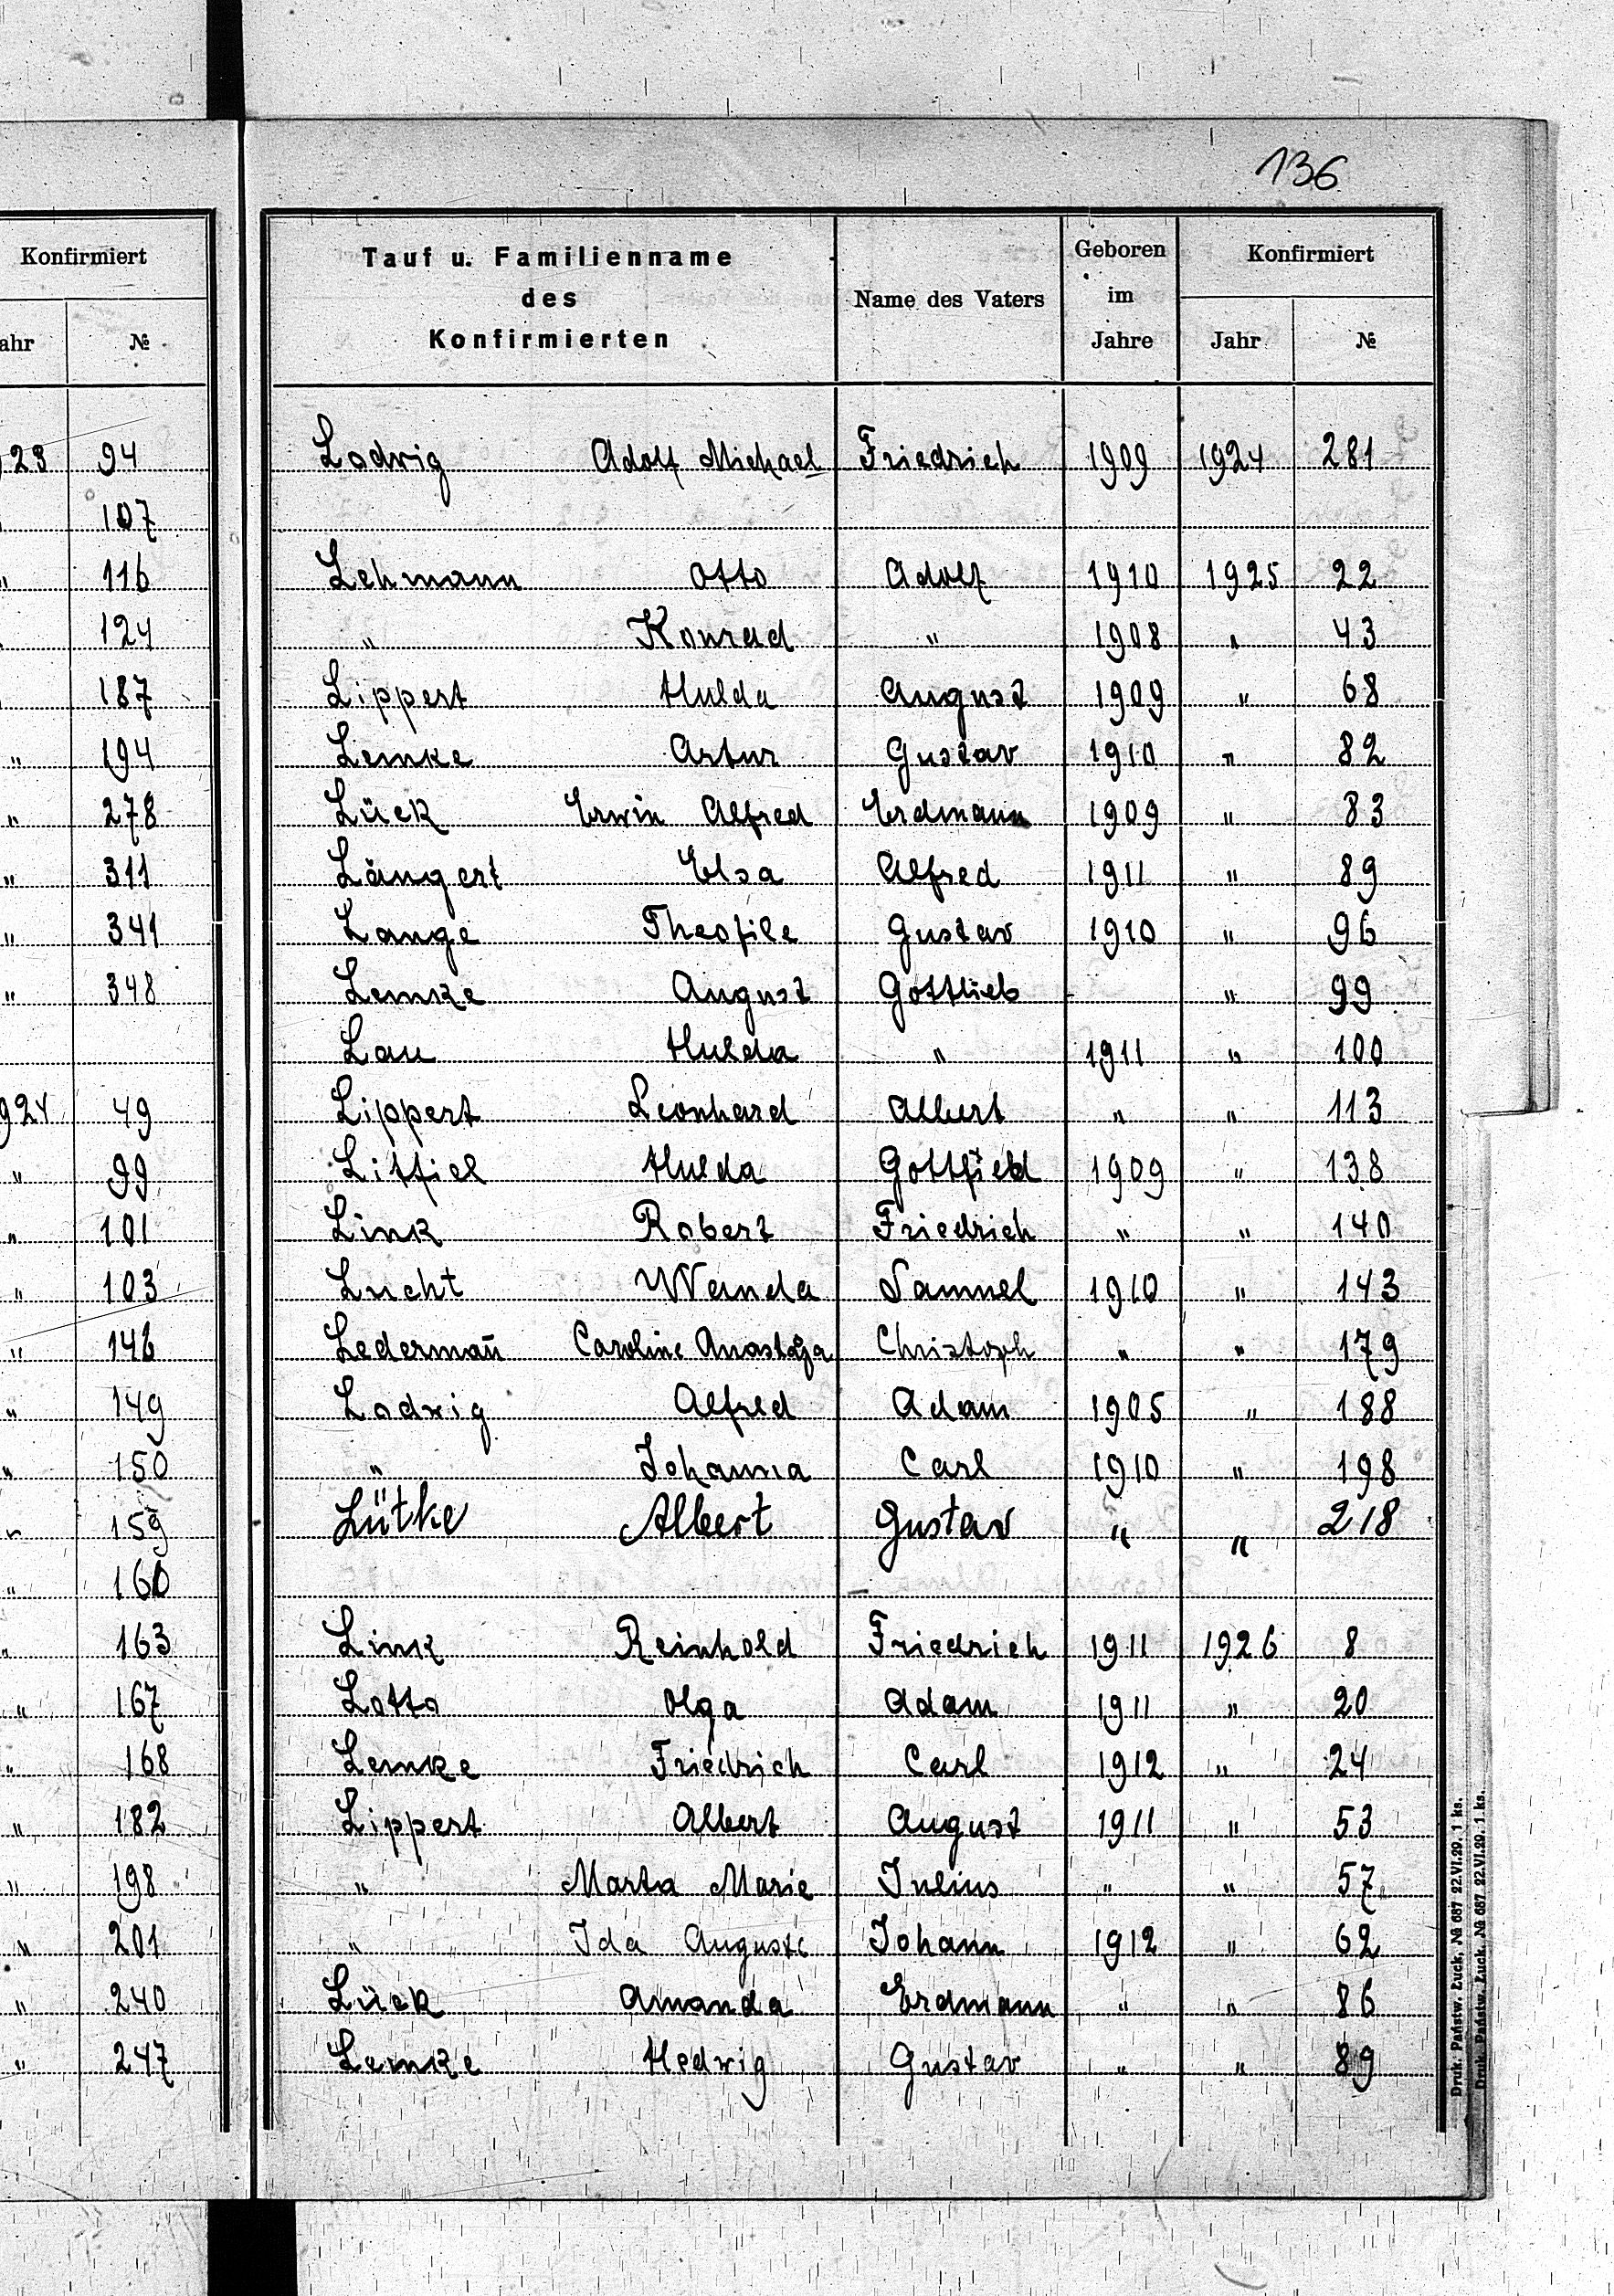 136
Konfirmiert
ahr №
23 94
107
" 116
124
187
" 194
" 278
" 311
" 341
" 348
924 49
" 99
" 101
" 103
" 146
" 149
" 150
" 159
" 160
" 163
" 167
" 168
" 182
" 198
" 201
" 240
" 247
Tauf u. Familienname des Konfirmierten Name des Vaters Geboren im Jahre Konfirmiert
Jahr №
Lodwig Adolf Michael Friedrich 1909 1924 281
Lehmann Otto Adolf 1910 1925 22
" Konrad " 1908 " 43
Lippert Hulda August 1909 " 68
Lemke Artur Gustav 1910 " 82
Lück Erwin Alfred Erdmann 1909 " 83
Längert Elsa Alfred 1911 " 89
Lange Theofile Gustav 1910 " 96
Lemke August Gottlieb - " 99
Lau Hulda " 1911 " 100
Lippert Leonhard Albert " " 113
Littfiel Hulda 1909 " 138
Link Robert Friedrich " " 140
Lucht Wanda Samuel 1910 " 143
Ledermañ Caroline Christoph " " 179
Lodwig Alfred Adam 1905 " 188
" Johanna Carl 1910 " 198
Lütke Albert Gustav " " 218
Link Reinhold Friedrich 1911 1926 8
Lotto Olga Adam 1911 " 20
Lemke Friedrich Carl 1912 " 24
Lippert Albert August 1911 " 53
" Marta Marie Julius " " 57
" Ida Auguste Johann 1912 " 62
Lück Amanda Erdmann " " 86
Lemke Hedwig Gustav " " 89
Druk. Państw. Łuck, № 687 22.VI.29. 1 ks.
Druk. Państw. Łuck, № 687 22.VI.29. 1 ks.